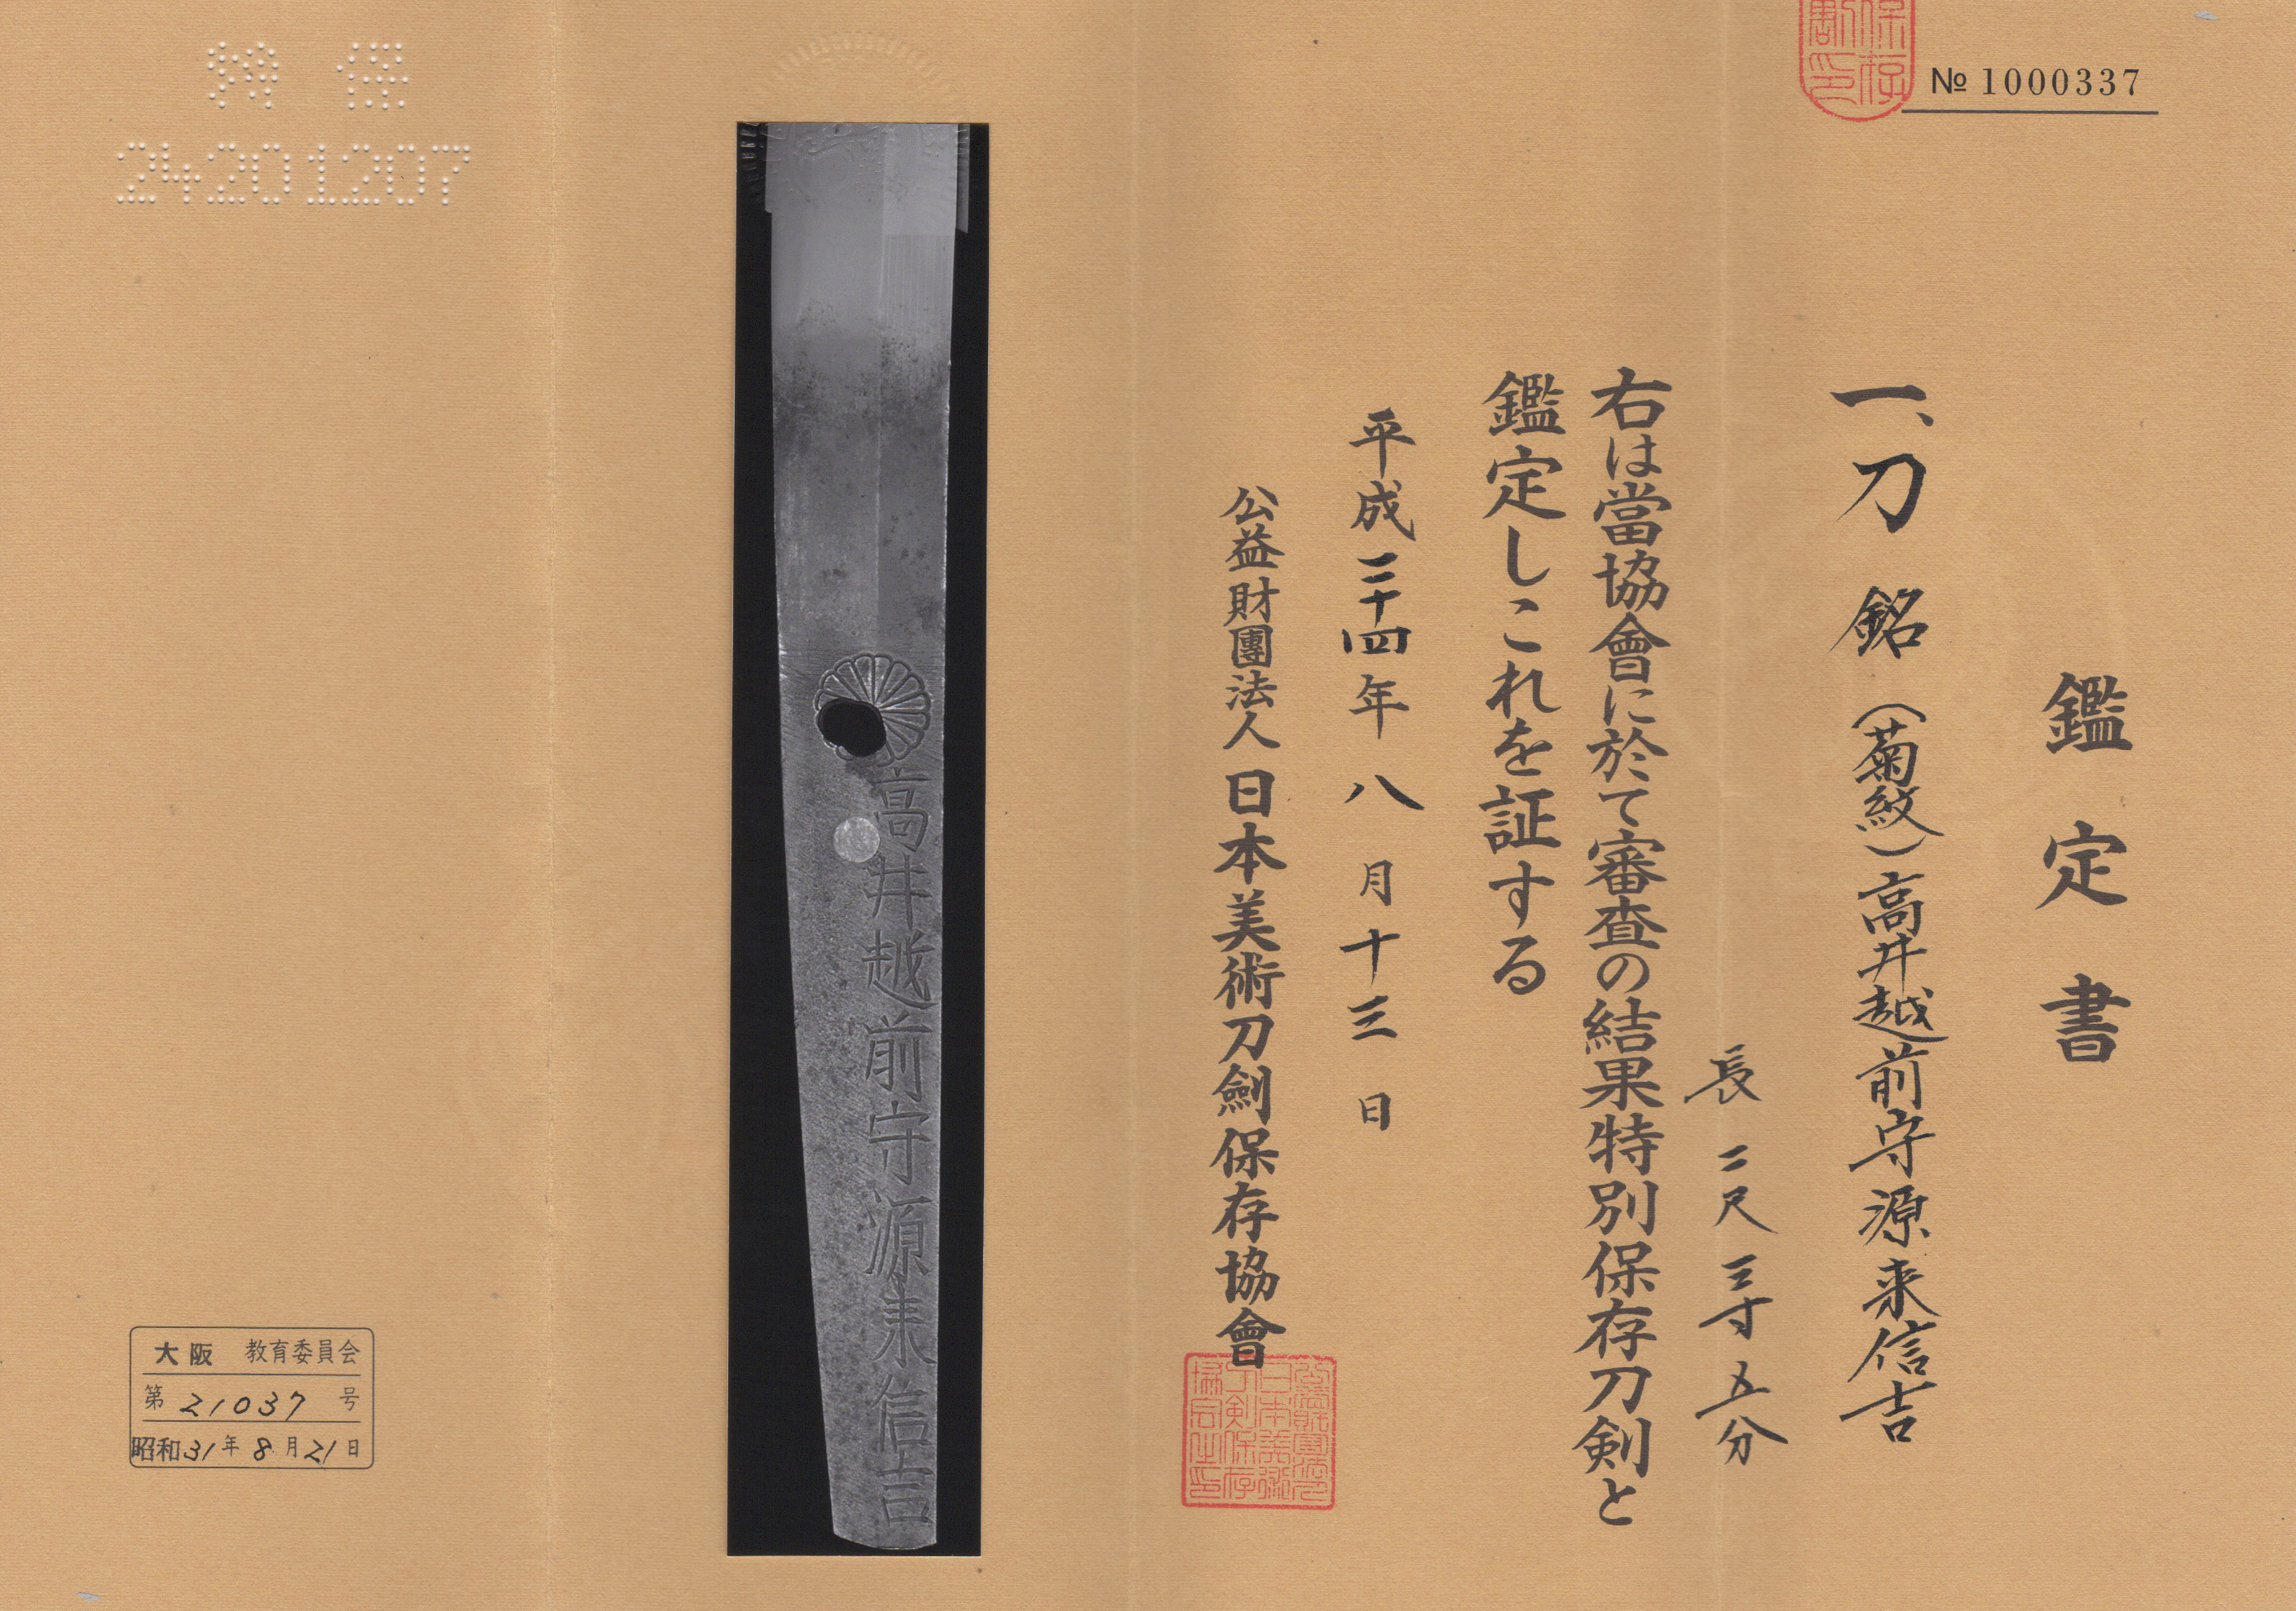 № 1000337
鑑定書
一、刀 銘(菊紋)高井越前守源来信吉
長 二尺三寸五分
右は當協會に於て審査の結果特別保存刀剣と
鑑定しこれを証する
平成二十四年八月十三日
公益財團法人日本美術刀劍保存協會
高井越前守源来信吉
特保
24201207
大阪 教育委員会
第 21037 号
昭和31年8月21日